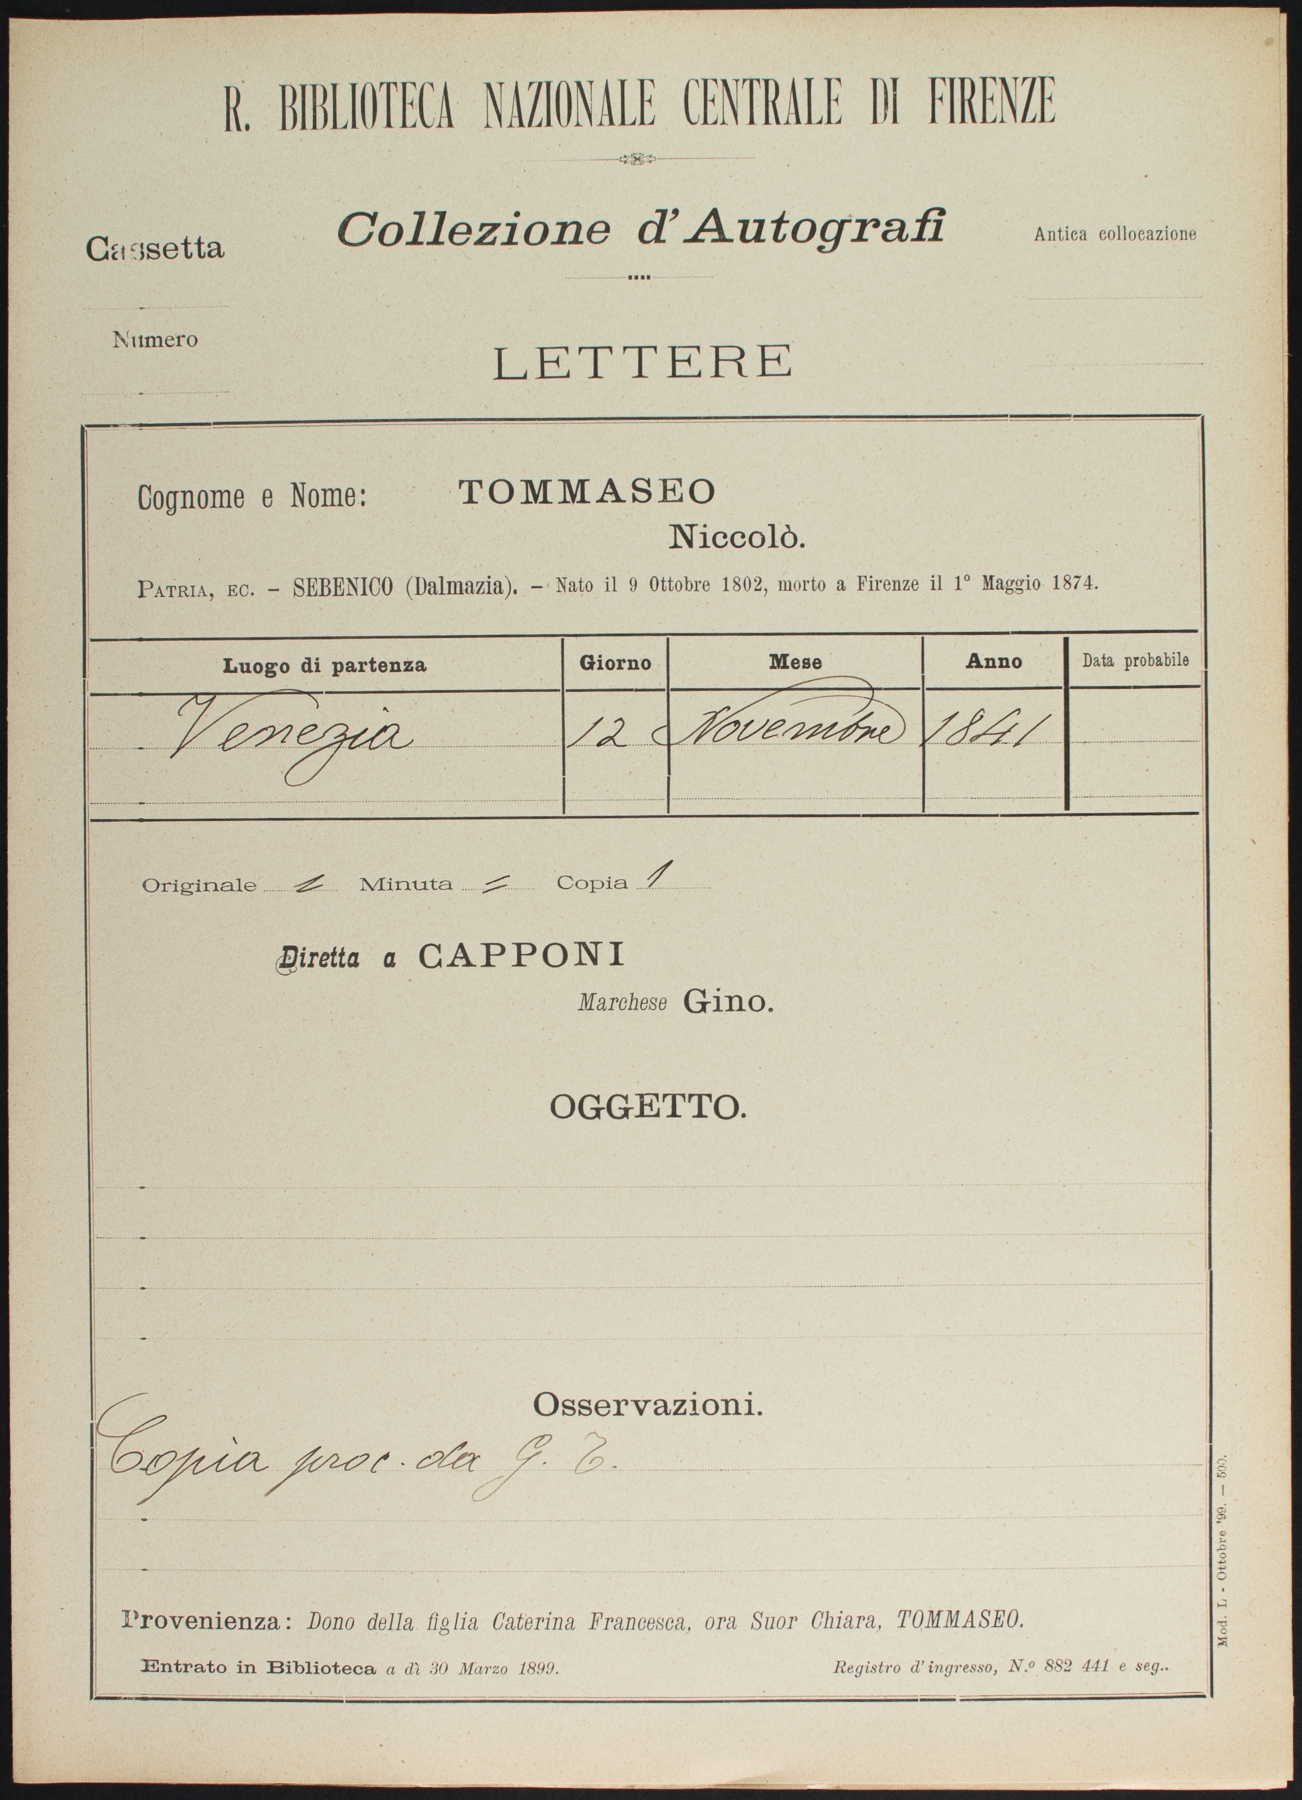 R. BIBLIOTECA NAZIONALE CENTRALE DI FIRENZE
Cassetta
Collezione d'Autografi
Antica collocazione
Numero
LETTERE
Cognome e Nome: TOMMASEO
Niccolò.
PATRIA, EC. – SEBENICO (Dalmazia). – Nato il 9 Ottobre 1802, morto a Firenze il 1º Maggio 1874.
Luogo di partenza Giorno Mese Anno Data probabile
Venezia 12 Novembre 1841
Originale = Minuta = Copia 1
Diretta a CAPPONI
Marchese Gino.
OGGETTO.
Osservazioni.
Copia proc. da G. T.
Provenienza: Dono della figlia Caterina Francesca, ora Suor Chiara, TOMMASEO.
Entrato in Biblioteca a dì 30 Marzo 1899. Registro d'ingresso, N.º 882 441 e seg..
Mod. L - Ottobre '99. — 500.